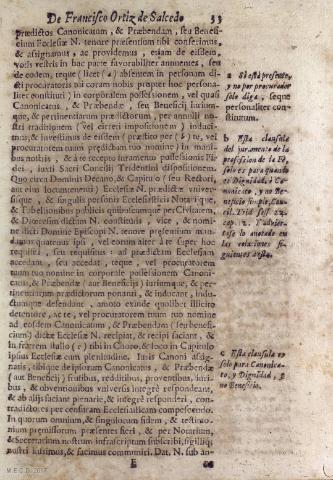 De Francisco Ortiz de Salcedo 33
prædictos Canonicatum, & Præbendam, seu Benefi-
cium Ecclesiæ N. tenore præsentium tibi conferimus,
& assignamus, ac providemus, etiam de eisdem,
votis vestris in hac parte favorabiliter annuentes, seu
de eodem, teque (licet (a) absentem in personam di-
cti procuratoris tui coram nobis propter hoc persona-
liter constituti) in corporalem possessionem, vel quasi
Canonicatus, & Præbendæ, seu Beneficij iurium-
que, & pertinentiarum prædictorum, per annuli no-
stri traditionem (vel birreti impositionem) indu-
mus, & investimus de eisdem (præstito per (b) te, vel
procuratorem tuum prædictum tuo nomine) in mani-
bus nostris, & à te recepto iuramento professionis Fi-
dei, iuxta Sacri Concilij Tridentini dispositionem.
Quo circa Dominis Decano, & Capitulo (seu Rectori,
aut eius locumtenenti) Ecclesiæ N. prædictæ univer-
sisque, & singulis personis Ecclesiasticis Notarijque,
& Tabellionibus publicis quibuscumque per Civitatem,
& Diœcesim dictam N. constitutis, vice, & nomi-
ne dicti Domini Episcopi N. tenore præsentium man-
damus quatenus ipsi, vel eorum alter à te super hoc
requisiti, seu requisitus ad prædictam Ecclesiam
accedant, seu accedat, teque, vel procuratorem
tuum tuo nomine in corporalem possessionem Canoni-
catus, & Præbendæ (aut Beneficij) iuriumque, & per-
tinentiarum prædictorum ponant, & inducant, indu-
ctumque defendant, amoto exinde quolibet illicito
detentore, ac te, vel procuratorem tuum tuo nomine
ad eosdem Canonicatum, & Præbendam (seu benefi-
cium) dictæ Ecclesiæ N. recipiat, & recipi faciant, &
in fratrem stallo (c) tibi in Choro, & loco in Capitulo
ipsius Ecclesiæ cum plenitudine Iuris Canonici assig-
natis, tibique de ipsorum Canonicatus, & Præbendæ
(aut Beneficij) fructibus, redditibus, proventibus, iuri-
bus, & obventionibus universis integrè respondeant,
& ab alijs faciant plenariè, & integrè responderi, con-
tradictores per censuram Ecclesiasticam compescendo.
In quorum omnium, & singulorum fidem, & testimo-
nium præmissorum præsentes fieri, per Notarium,
& Secretarium nostrum infrascriptum subscribi, sigilliq;
nostri iussimus, & facimus communiri. Dat. N. sub an-
E
a Si està presente,
y no por procurador
solo diga, seque
personaliter con-
stitutum.
b Esta clausula
del juramento de la
profession de la Fè,
solo es para quando
es Dignidad, ò Ca-
nonicato, y no Be-
neficio simple, Con-
cil. Trid. sess. 24.
cap. 12. Y advier-
tase lo anotado en
las colaciones si-
guientes desta.
c Esta clausula es
solo para Canonica-
to, y Dignidad, y
no Beneficio.
M.E.C.D. 2017